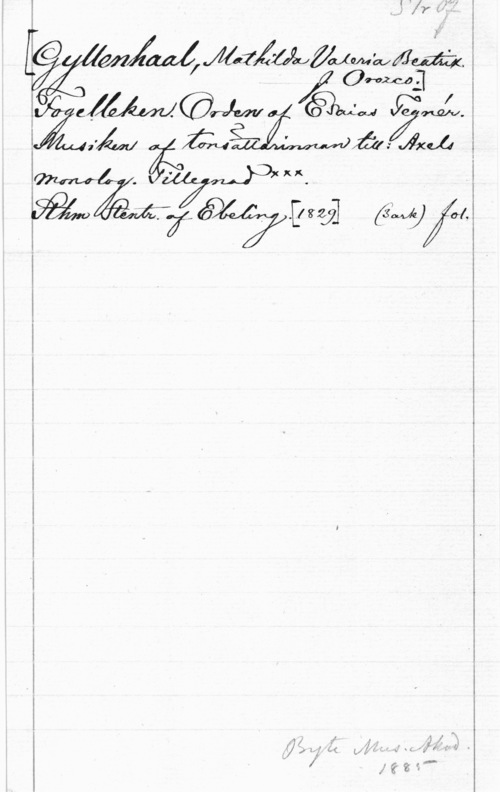 [Gyllenhaal, Mathilda Valeria Beatrix
f. Orozco.]
Fogelleken. Orden af Esaias Tegnér.
Musiken af tonsättarinnan till: Axels
monolog. Tillegnad xxx.
Sthm Stentr. af Ebeling. [1829] (3 ark) fol.
Byte Mus. Akad.
1885